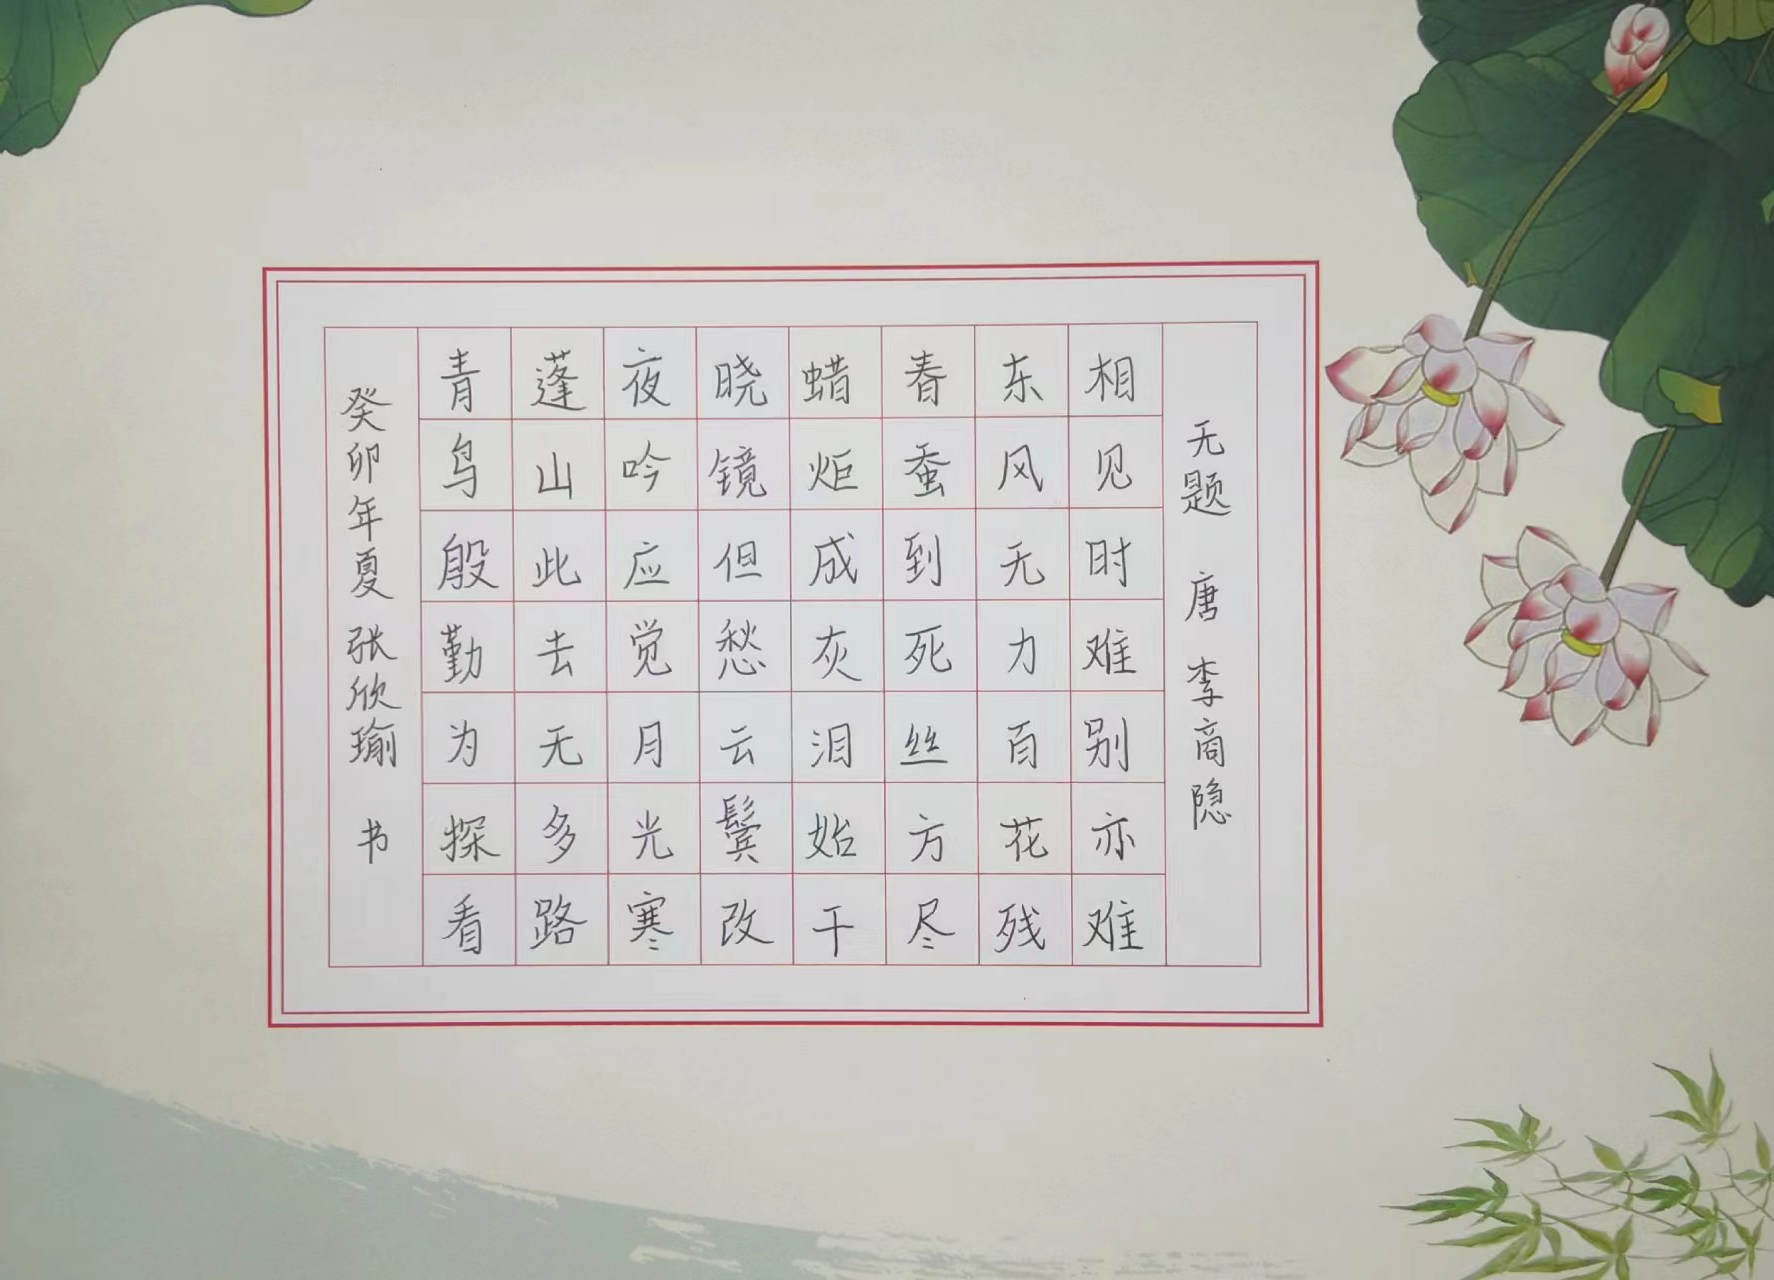 无题 唐 李商隐
相见时难别亦难
东风无力百花残
春蚕到死丝方尽
蜡炬成灰泪始干
晓镜但愁云鬓改
夜吟应觉月光寒
蓬山此去无多路
青鸟殷勤为探看
癸卯年夏 张欣瑜 书